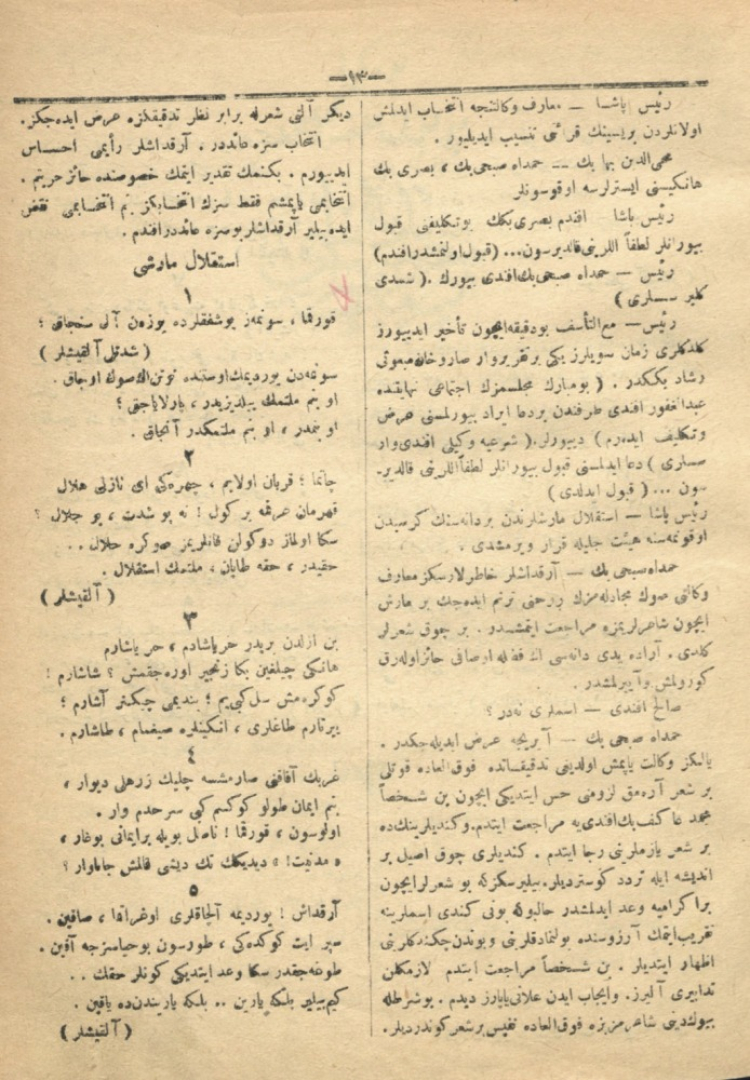 —١٣—
رئيس پاشا — معارف وكالتنجه انتخاب ايدلمش
اولانلردن بريسينك قرائتى تنسيب ايديليور .
محى الدين بها بك — حمدالله صبحى بك ، بصرى بك
هانكيسنى ايسترلرسه اوقوسونلر
رئيس پاشا — افندم بصرى بكك بوتكليفنى قبول
بيورانلر لطفاً اللرينى قالديرسون... (قبول اولنمشدر افندم)
رئيس — حمدالله صبحى بك افندى بيورك .( شدتلى
رئيس — مع التأسف بودقيقه ايچون تأخير ايدييورز
كله جكلرى زمان سويلرز يكى بر تقرير وار صاروخان مبعوثى
رشاد بككدر . ( بومبارك مجلسمزك اجتماعى نهايتنده
عبدالغفور افندى طرفندن بر دعا ايراد بيورلمسنى عرض
وتكليف ايدەرم ) دييورلر.( شرعيه وكيلى افندى وار
صسلرى ) دعا ايدلمسنى قبول بيورانلر لطفاً اللرينى قالدير-
سون ... ( قبول ايدلدى )
رئيس پاشا — استقلال مارشلرندن بر دانه سنك كرسيدن
اوقونمه سنه هيئت جليله قرار ويرمشدى .
حمدالله صبحى بك — آرقداشلر خاطرلارسكز معارف
وكالتى صوك مجادله مزك روحنى ترنم ايده جك بر مارش
ايچون شاعرلريمزه مراجعت ايتمشدر . بر چوق شعرلر
كلدى . آراده يدى دانه سى اك فضله اوصافى حائز اوله رق
كورولمش وآيرلمشدر .
صالح افندى — اسملرى نه در ؟
حمدالله صبحى بك — آيريجه عرض ايديله جكدر .
يالكز وكالت ياپمش اولدينى تدقيقاتده فوق العاده قوتلى
بر شعر آرامق لزومنى حس ايتديكى ايچون بن شخصاً
محمد عاكف بك افندى يه مراجعت ايتدم. وكنديلرينك ده
بر شعر يازملرينى رجا ايتدم . كنديلرى چوق اصيل بر
انديشه ايله تردد كوسترديلر. بيليرسكز كه بو شعرلر ايچون
بر اكراميه وعد ايدلمشدر حالبوكه بونى كندى اسملرينه
تقريب ايتمك آرزوسنده بولنمادقلرينى وبوندن چكندكلرينى
اظهار ايتديلر . بن شخصاً مراجعت ايتدم لازمكلن
تدابيرى آليرز. وايجاب ايدن علانى ياپارز ديدم . بوشرطله
بيوك دينى شاعرمز بزه فوق العاده نفيس بر شعر كوندرديلر.
ديكر آلتى شعرله برابر نظر تدقيقكزه عرض ايده جكز .
انتخاب سزه عائددر . آرقداشلر رأيمى احساس
ايدييورم . بكنمك تقدير ايتمك خصوصنده حائز حريتم .
انتخابمى ياپمشم فقط سزك انتخابكز بنم انتخابمى نقض
ايده بيلير آرقداشلر بو سزه عائددر افندم .
استقلال مارشى
١
قورقما ، سونمز بو شفقلرده يوزەن آل سنجاق ؛
( شدتلى آلقيشلر )
سونمەدن يورديمك اوستنده توتن اك صوك اوجاق .
او بنم ملتمك ييلديزيدر ، پارلاياجق ؛
او بنمدر ، او بنم ملتمكدر آنجاق .
٢
چاتما ؛ قربان اولايم ، چهره كى اى نازلى هلال
قهرمان عرقمه بر كول ! نه بو شدت ، بو جلال ؟
سكا اولماز دوكولن قانلريمز صوكره حلال . .
حقيدر ، حقه طاپان ، ملتمك استقلال .
( آلقيشلر )
٣
بن ازلدن بريدر حر ياشادم ، حر ياشارم
هانكى چيلغين بكا زنجير اوره جقمش ؟ شاشارم !
كوكره مش سل كبى يم ؛ بنديمى چيكنر آشارم ؛
ييرتارم طاغلرى ، انكينلره صيغمام ، طاشارم .
٤
غربك آفاقنى صارمشسه چليك زرهلى ديوار ،
بنم ايمان طولو كوكسم كبى سرحدم وار .
اولوسون ، قورقما ! ناصل بويله بر ايمانى بوغار ،
« مدنيت! » ديديكك تك ديشى قالمش جاناوار ؟
٥
آرقداش ! يورديمه آلچاقلرى اوغراتما ، صاقين .
سپر ايت كوكدەكى ، طورسون بو حياسزجه آقين .
طوغه جقدر سكا وعد ايتديكى كونلر حقك . .
كيم بيلير بلكه يارين .. بلكه ياريندن ده ياقين .
( آلقيشلر )